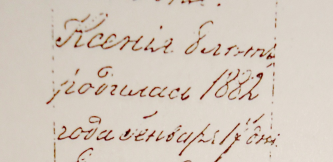 Ксенія
родилась 1882
года генваря 17 дня